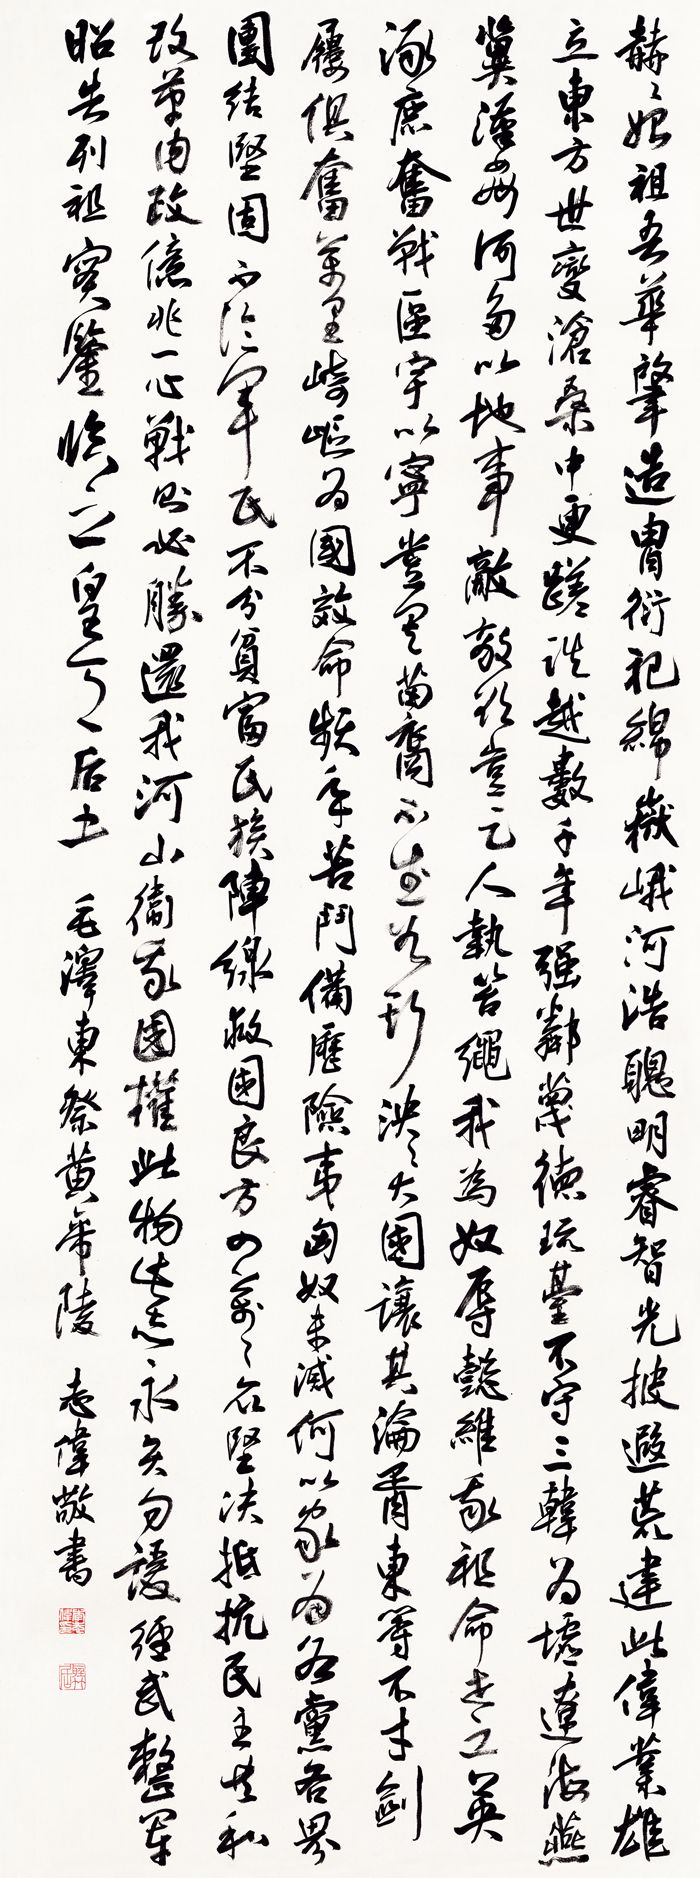 赫〻始祖吾華肇造冑衍祀綿嶽峨河浩聰明睿智光披遐荒建此偉業雄
立東方世變滄桑中更蹉跌越數千年强鄰蔑德琉臺不守三韓为墟遼海燕
冀漢姦何多以地事敵敵欲豈足人執笞繩我為奴辱懿維我祖命世之英
涿鹿奮戰區宇以寧豈其苗裔不武如斯泱〻大國讓其淪胥東等不才劍
屨俱奮萬里崎嶇为國效命頻年苦鬥備歷險夷匈奴未滅何以家为各黨各界
團結堅固不論軍民不分貧富民族陣線救國良方四萬〻众堅决抵抗民主共和
改革内政億兆一心戰則必勝還我河山衛我國權此物此志永矢勿諼經武整軍
昭告列祖實鑒臨之皇天后土 毛澤東祭黄帝陵 志偉敬書